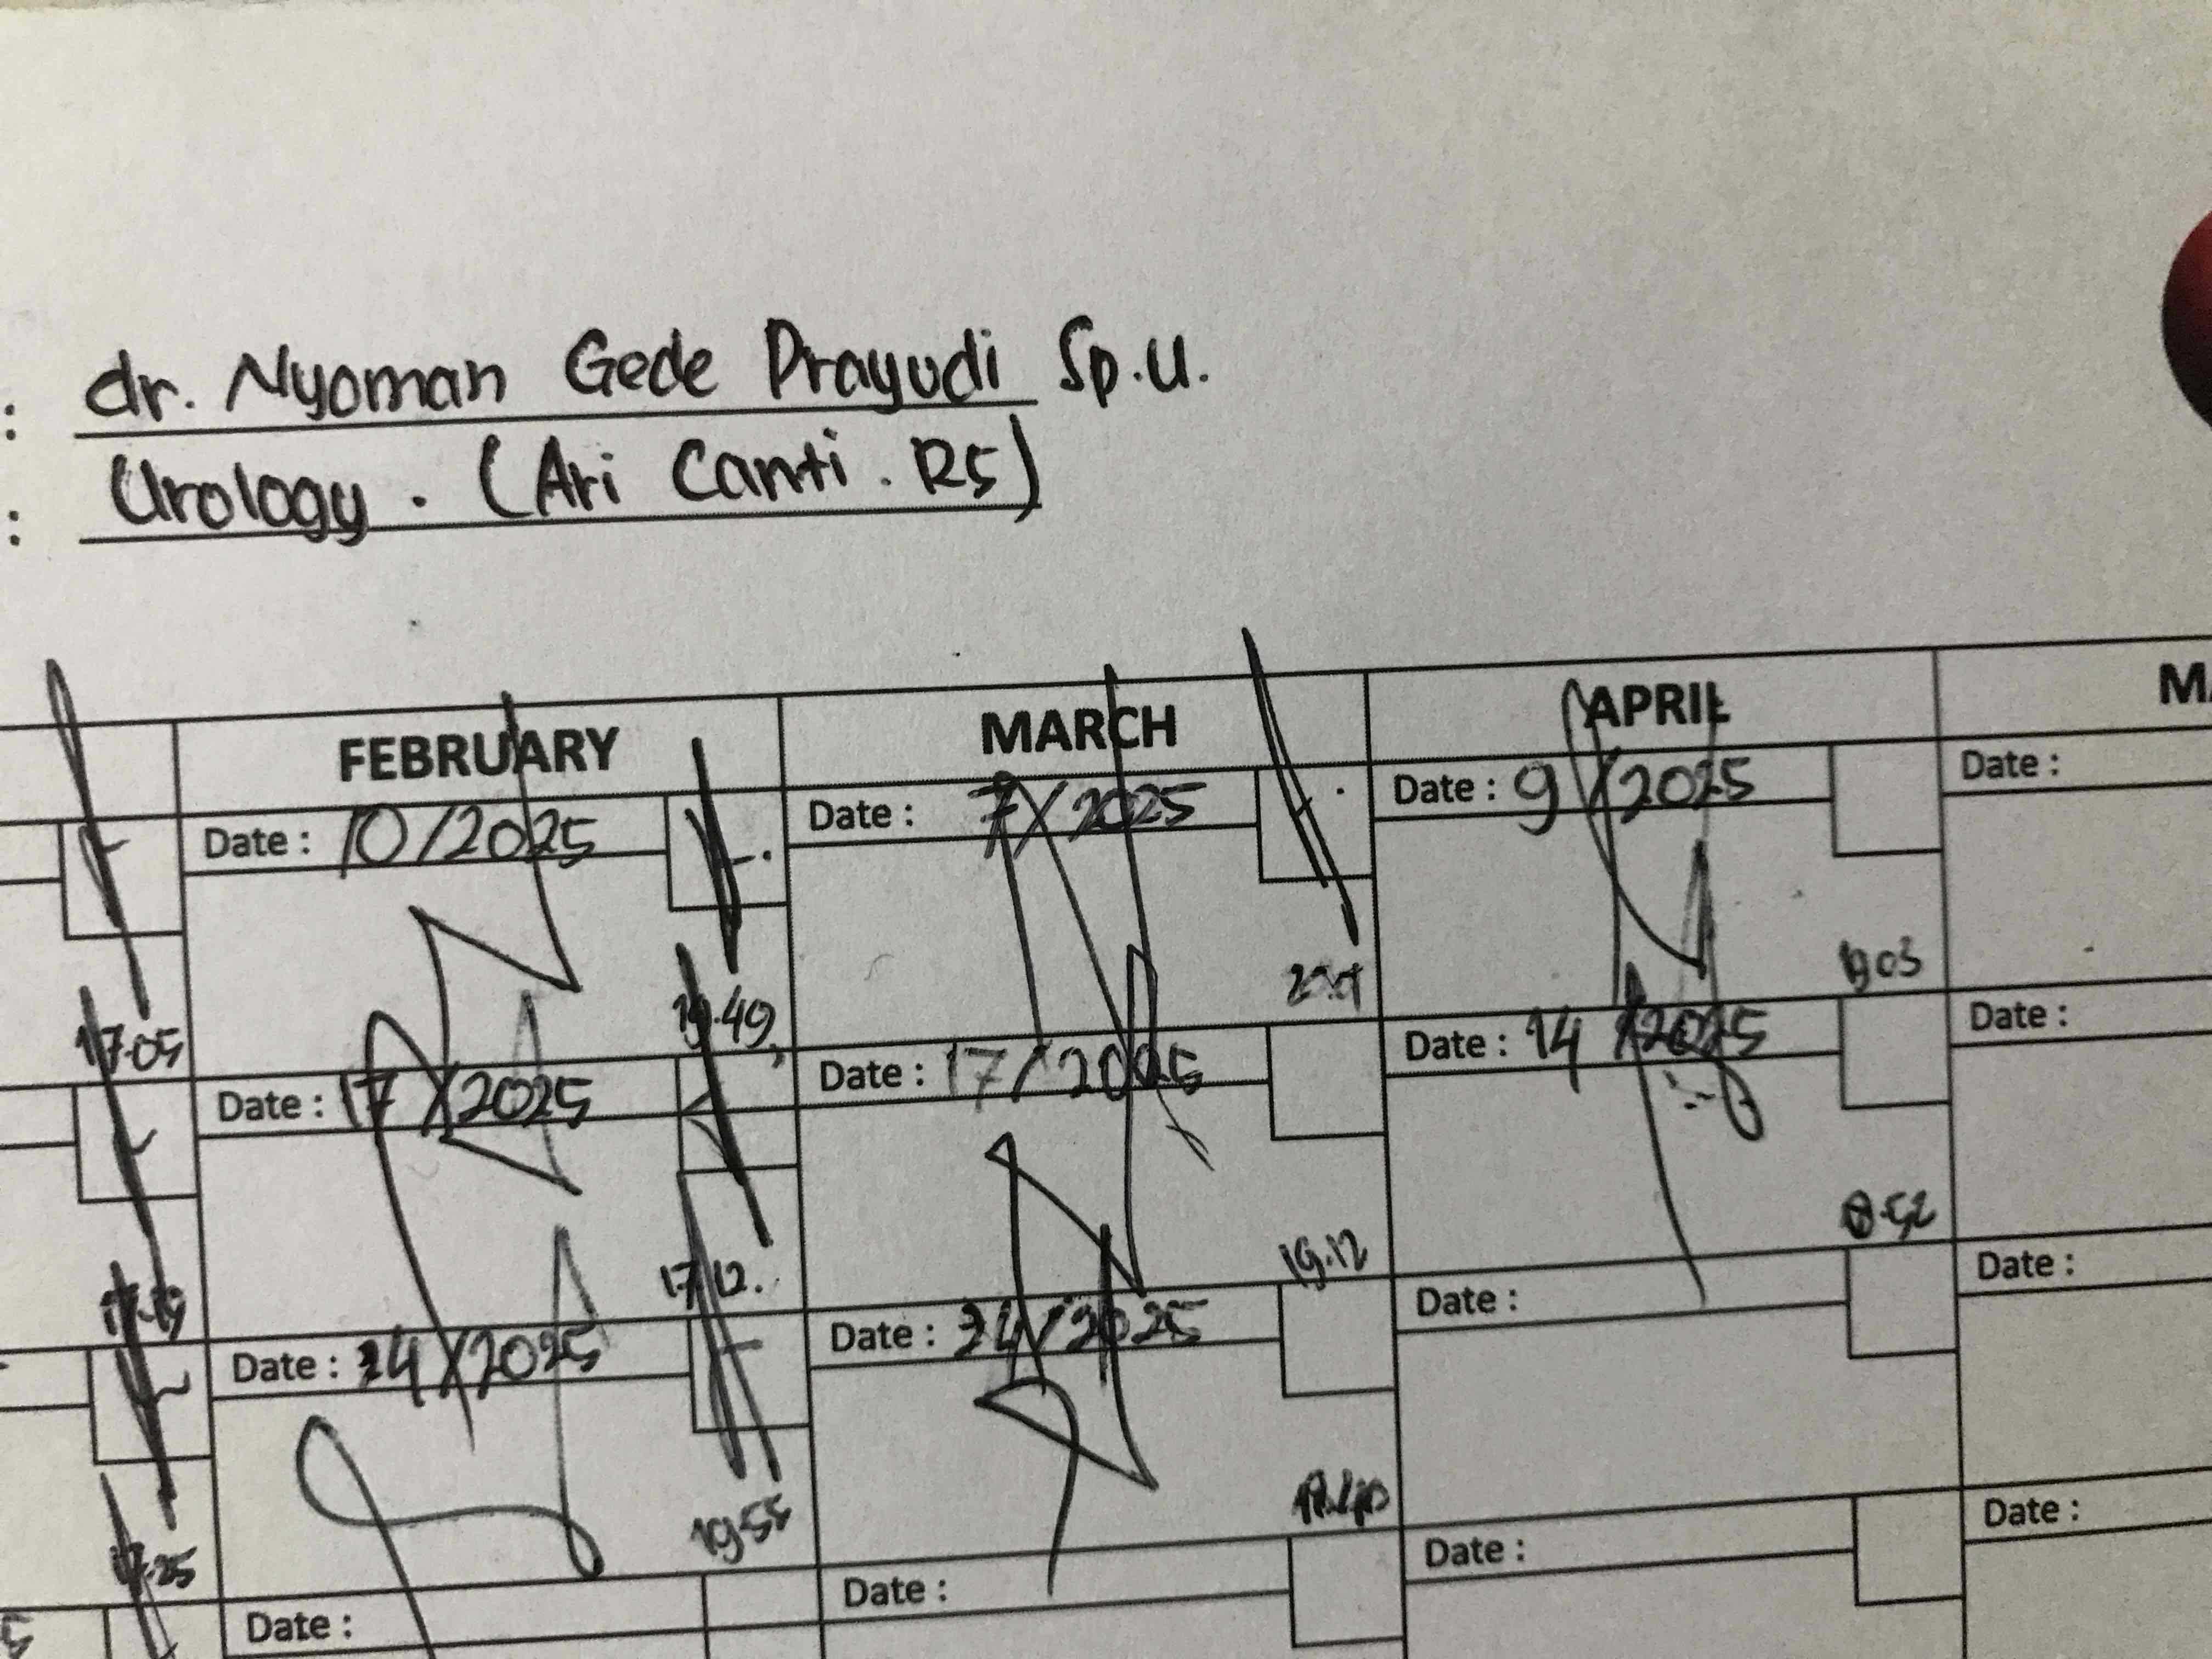 : dr. Nyoman Gede Prayudi Sp.U.
: Urology . (Ari Canti . RS)
FEBRUARY MARCH APRIL
Date : 10/2025 Date : 7/2025 Date : 9/2025 Date :
17.05 19.49 19.03
Date : 17/2025 Date : 17/2025 Date : 14/2025 Date :
17.12. 19.12
Date : 24/2025 Date : 24/2025 Date : Date :
19.55
Date : Date : Date : Date :